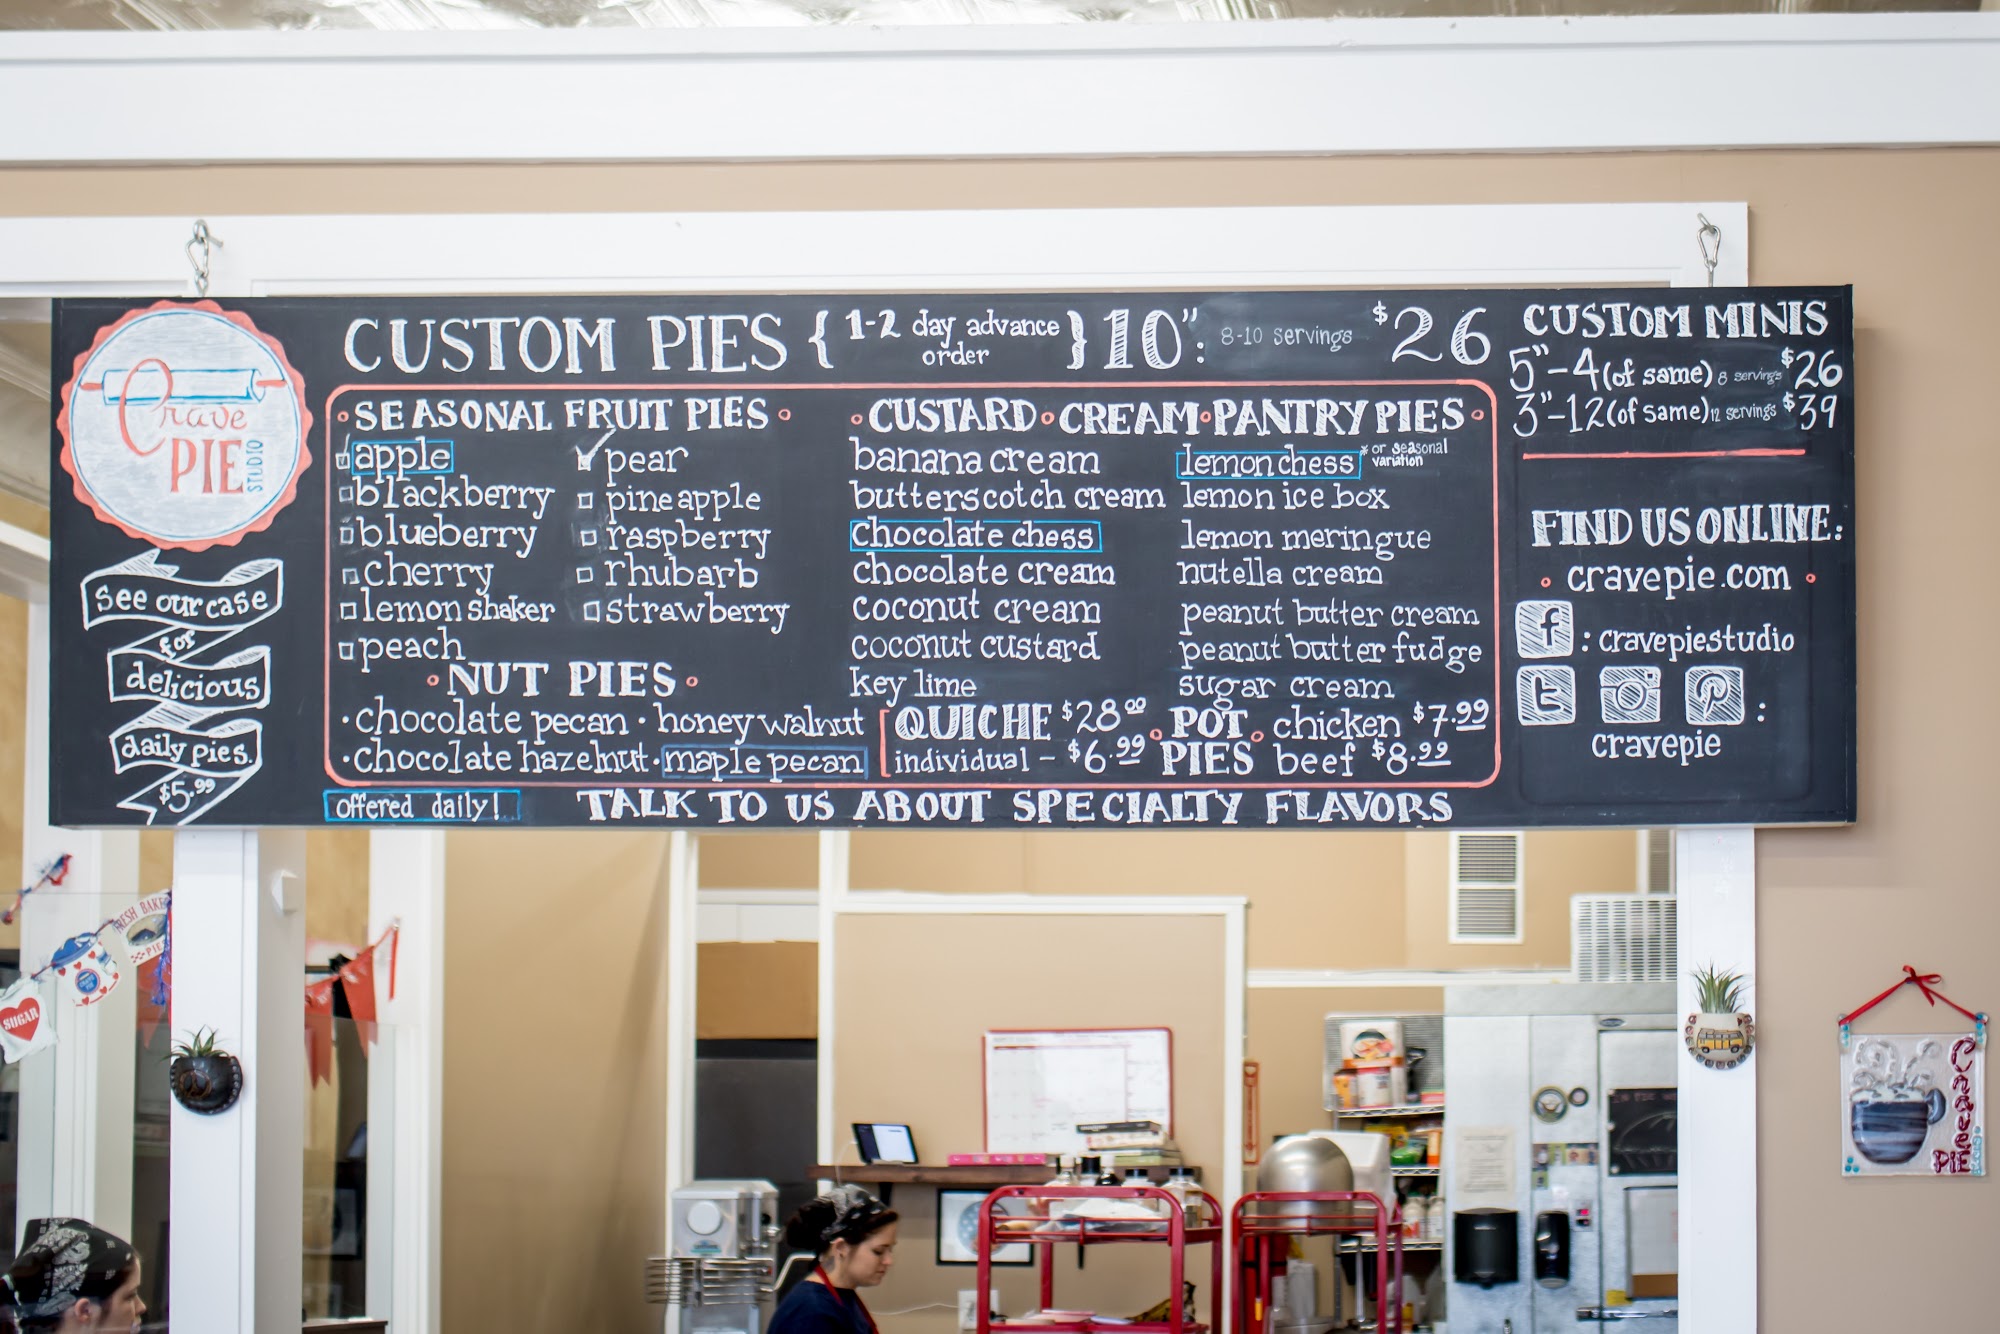 Crave
PIE
STUDIO
See our case
for
delicious
daily pies.
$5.99
CUSTOM PIES { 1-2 day advance order } 10": 8-10 servings $26
SEASONAL FRUIT PIES
apple
blackberry
blueberry
cherry
lemon shaker
peach
pear
pineapple
raspberry
rhubarb
strawberry
NUT PIES
• chocolate pecan • honey walnut
• chocolate hazelnut • maple pecan
offered daily!
CUSTARD • CREAM • PANTRY PIES
banana cream
butterscotch cream
chocolate chess
chocolate cream
coconut cream
coconut custard
key lime
lemon chess * or seasonal variation
lemon ice box
lemon meringue
nutella cream
peanut butter cream
peanut butter fudge
sugar cream
QUICHE $28.00
individual - $6.99
POT PIES
chicken $7.99
beef $8.99
TALK TO US ABOUT SPECIALTY FLAVORS
CUSTOM MINIS
5"-4 (of same) 8 servings $26
3"-12 (of same) 12 servings $39
FIND US ONLINE:
• cravepie.com •
f : cravepiestudio
t :
cravepie
FRESH BAKE
PIE
SUGAR
Crave
PIE